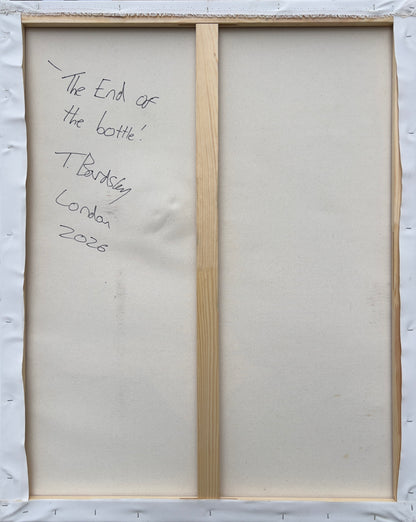 'The End of
the bottle'.
T. Bardsley
London
2026